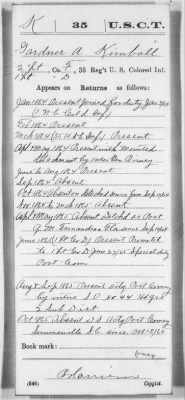 K 35 U.S.C.T.
Gardner A Kimball
2 Lt, Co. F, 35 Reg't U. S. Colored Inf.
1 Lt D
Appears on Returns as follows:
Jan 1864 Present Joined for duty Jan
(1 N.C. Cold Inf)
Feb 1864 Present
Mch 1864 (35 U.S.C. Inf) Present
Apl May 1864 Present with Mounted
Detachment by order Gen Birney
June to Aug 1864 Present
Sep 1864 Absent
Oct 1864 Absent on Detached service from Sep 1864
Nov 1864 to Mch 1865 Absent
Apl May 1865 Absent Detached as Post
Q.M. Fernandina Fla since Sep 1864
June 1865 Present Promoted
to 1 Lt Co D June 27/65 Special duty
Post Com
Aug & Sep 1865 Present actg Post Comsy
by order S.O. 44 Hdqrs
2 Sub Dist
Oct 1865 Absent D.S. Actg Post Comsy
Summerville S.C. since Oct 18/65
Book mark:
(646) Copyist.